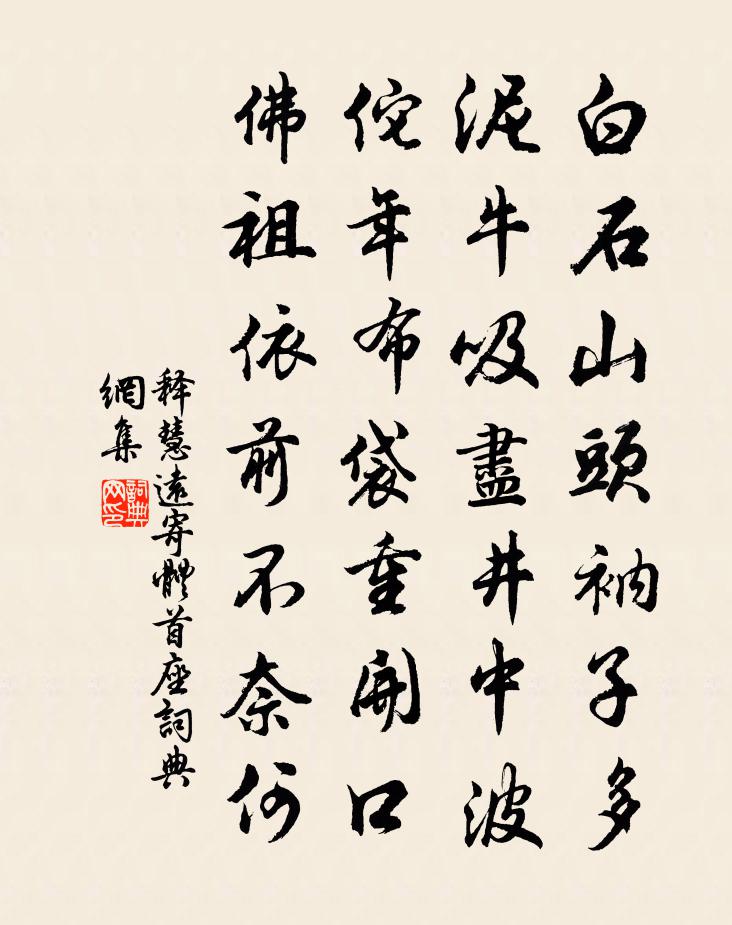 白石山頭衲子多
泥牛吸盡井中波
佗年布袋重開口
佛祖依前不奈何
释慧遠寄體首座詞典
網集
詞典
网印